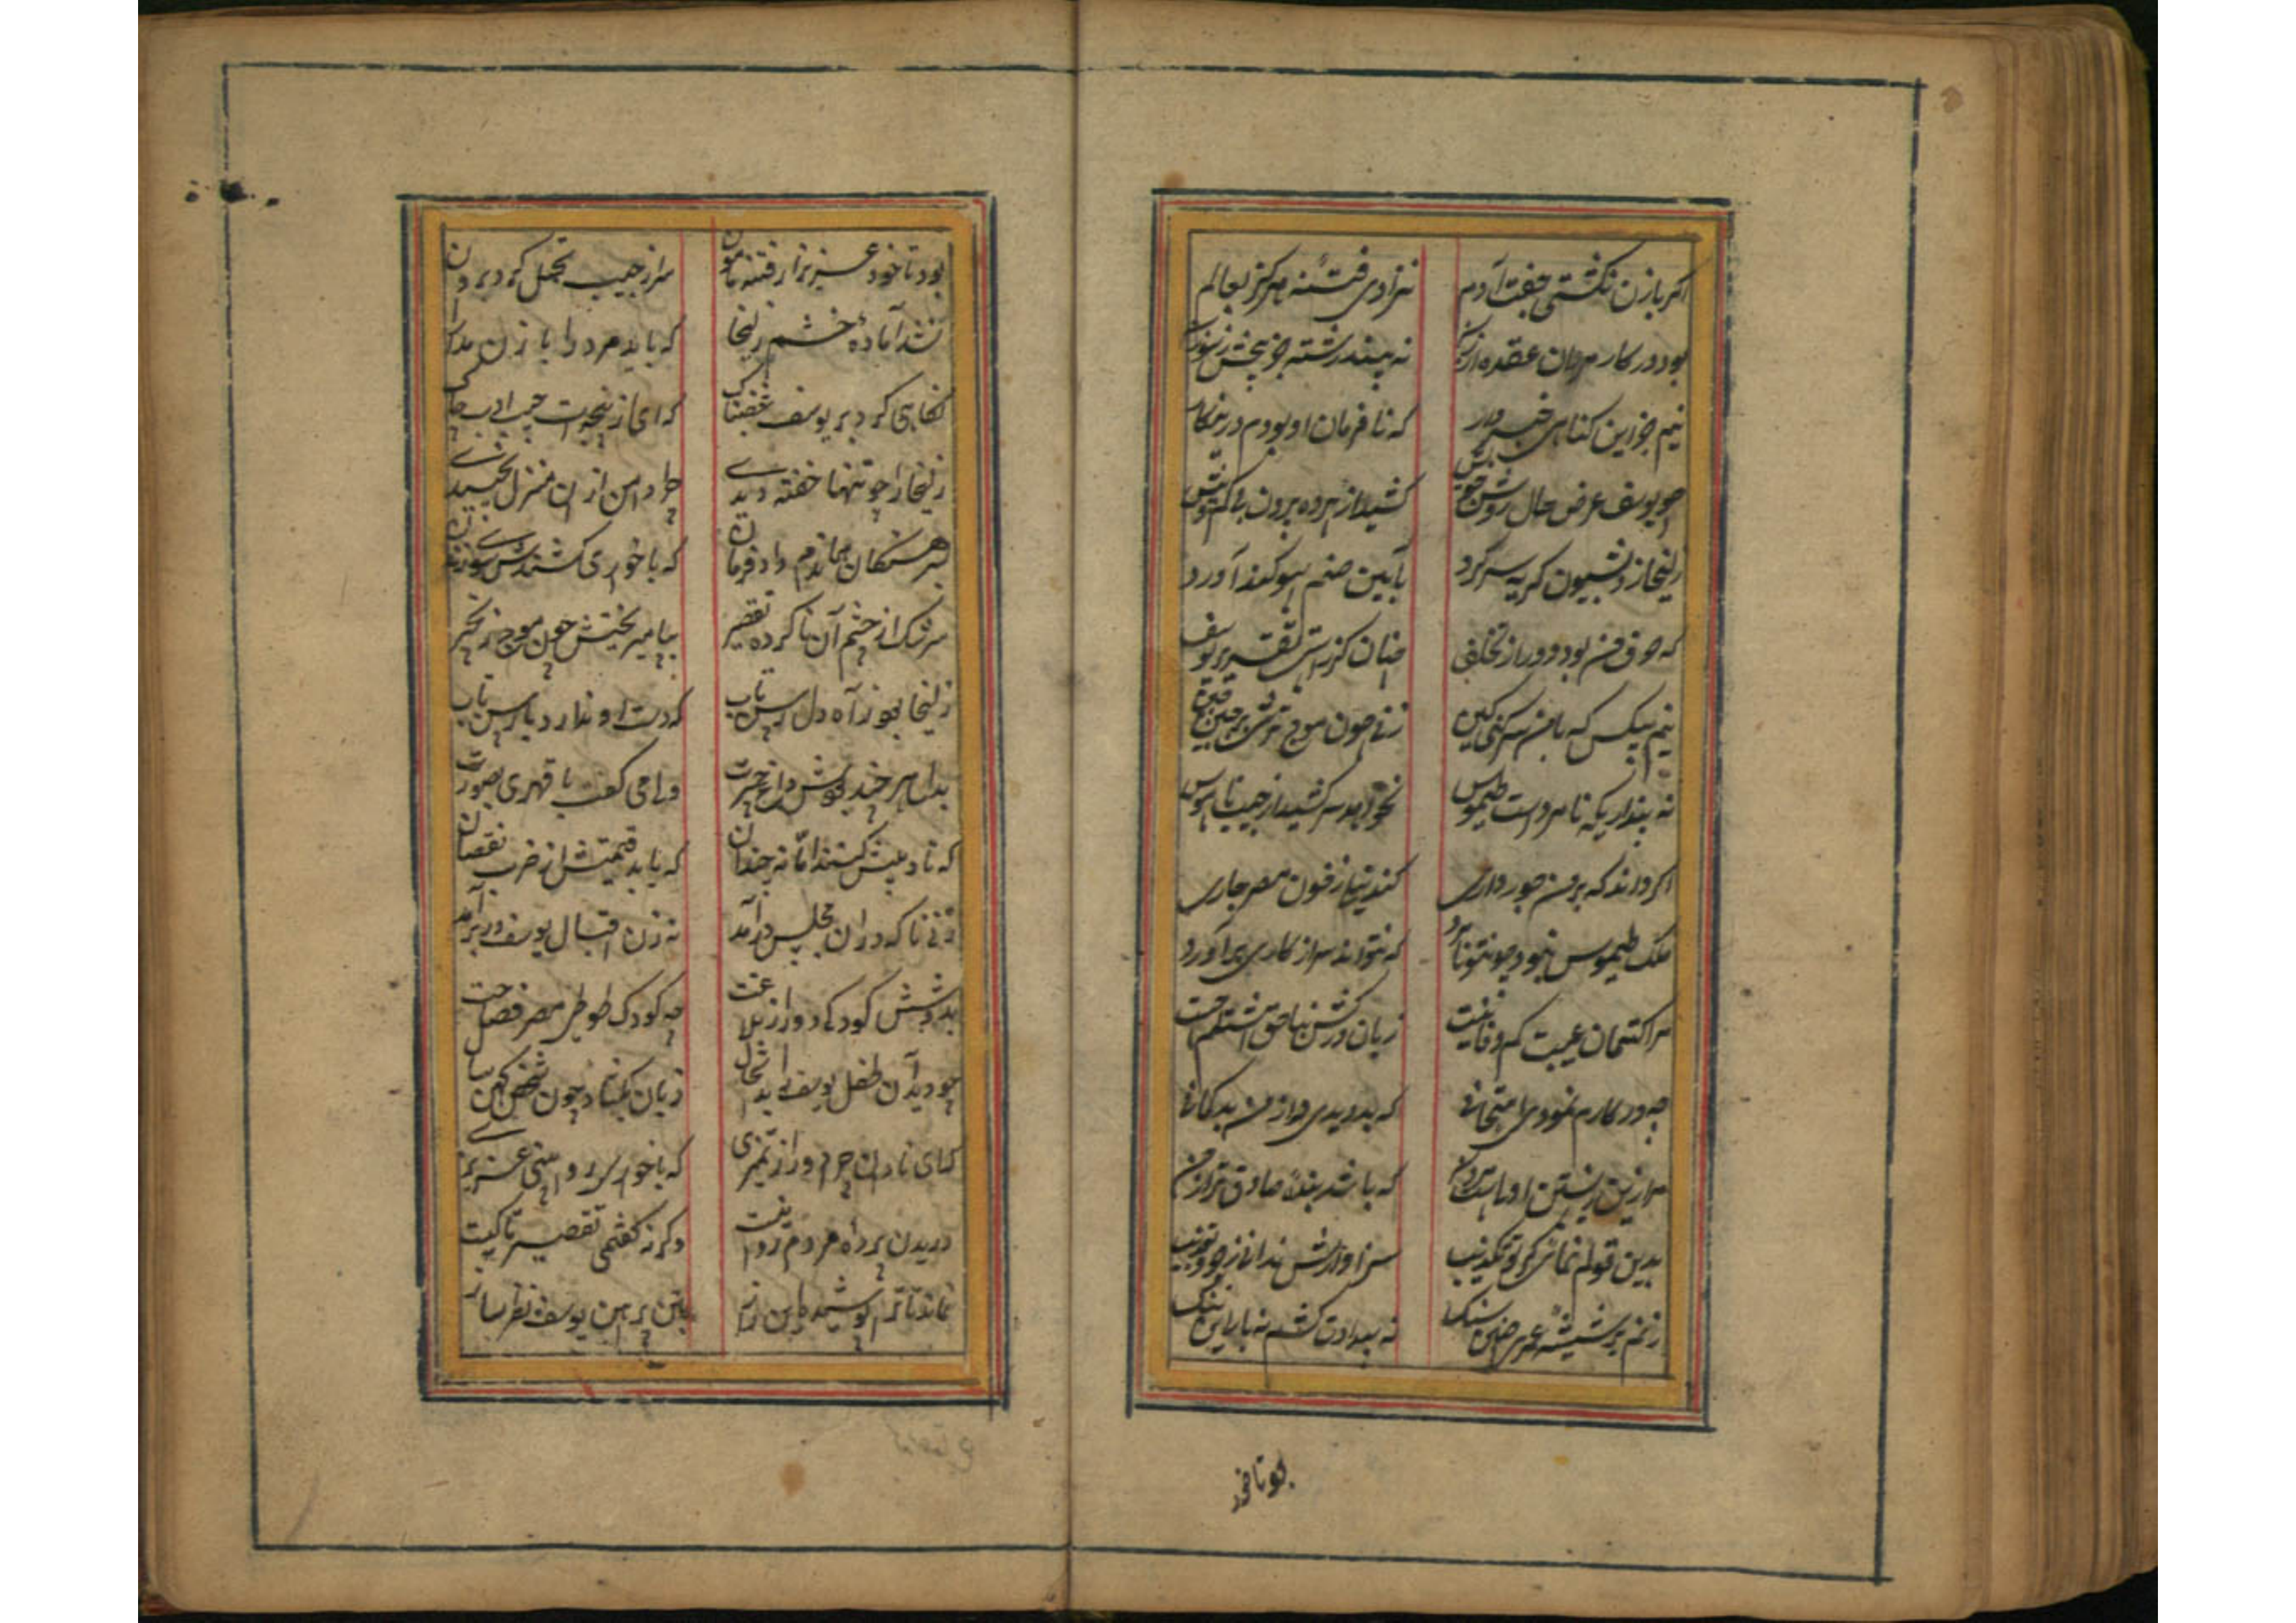 اگر با زن نگشتی جفت آدم نزادی فتنه هرگز بعالم
بود در کار مردان عقده از زن نه بیند رشته جز پیچش ز سوزن
نیم جز این گناهی خبردار که نافرمان او بودم درین کار
چو یوسف عرض حال روشن کشید از پرده برون
زلیخا از دو شیون گریه سر کرد بآیین صنم سوکند آورد
که حرف من بود دور از تخلف چنان کز راستی تقریر یوسف
نیم بیکس که با من سر کنی کین زنی چون موج
نه پنداری که نامرداست طیموس نخواهد سر کشید از جیب ناموس
اگر داند که بر من جور داری کند نیل از خون مصر جاری
ملک طیموس نبود چون تو نامرد که نتواند سر از کاری برآورد
مرا کتمان عیبت کم وفا نیست زبان
چه در کارم نمودی امتحانی که بد دیدی و از من بدگمانی
مرا زین زیستن اولیست مردن که باشد بنده صادق‌تر از من
بدین قولم نمائی گر تو تکذیب سزاوارش ندانی جز بتعذیب
زنم بر شیشه عمر خود سنگ نه بیدادت کشم نه بار این ننگ
بود تا خود
بود تا خود عزیز از رفتن نامون سر از جیب تحمل کرد بیرون
شد آماده خشم زلیخا که باید مرد را با زن مدارا
نگاهی کرد بر یوسف غضبناک که ای از پنجه‌ات جیب ادب چاک
زلیخا را چو تنها خفته دیدی چرا دامن ازان منزل نچیدی
بسرهنگان هماندم داد فرمان که با خواری کشندش سوی زندان
سرشک از چشم آن ناکرده تقصیر بپا میریختش چون موج زنجیر
زلیخا هم ز آه دل رسن تاب که دست او ندارد با رسن تاب
بدل هر چند بودش داغ حیرت ولی می گفت با قهری بصورت
که تادیبش کنند اما نه چندان که یابد قیمتش از ضرب نقصان
زنی ناگه دران مجلس درآمد نه زن اقبال یوسف در برآمد
بدوشش کودکی دور از بلاغت چه کودک طوطی مصر فصاحت
چو دید آن طفل یوسف را بد احوال زبان بگشاد چون شخص کهن سال
که ای نادان چرا دور از تمیزی که با خواری روا بینی عزیزی
دریدن پرده مردم روا نیست وگرنه گفتمی تقصیر تا کیست
نماند تا ترا پوشیده این راز ببین پیراهن یوسف نظر ساز